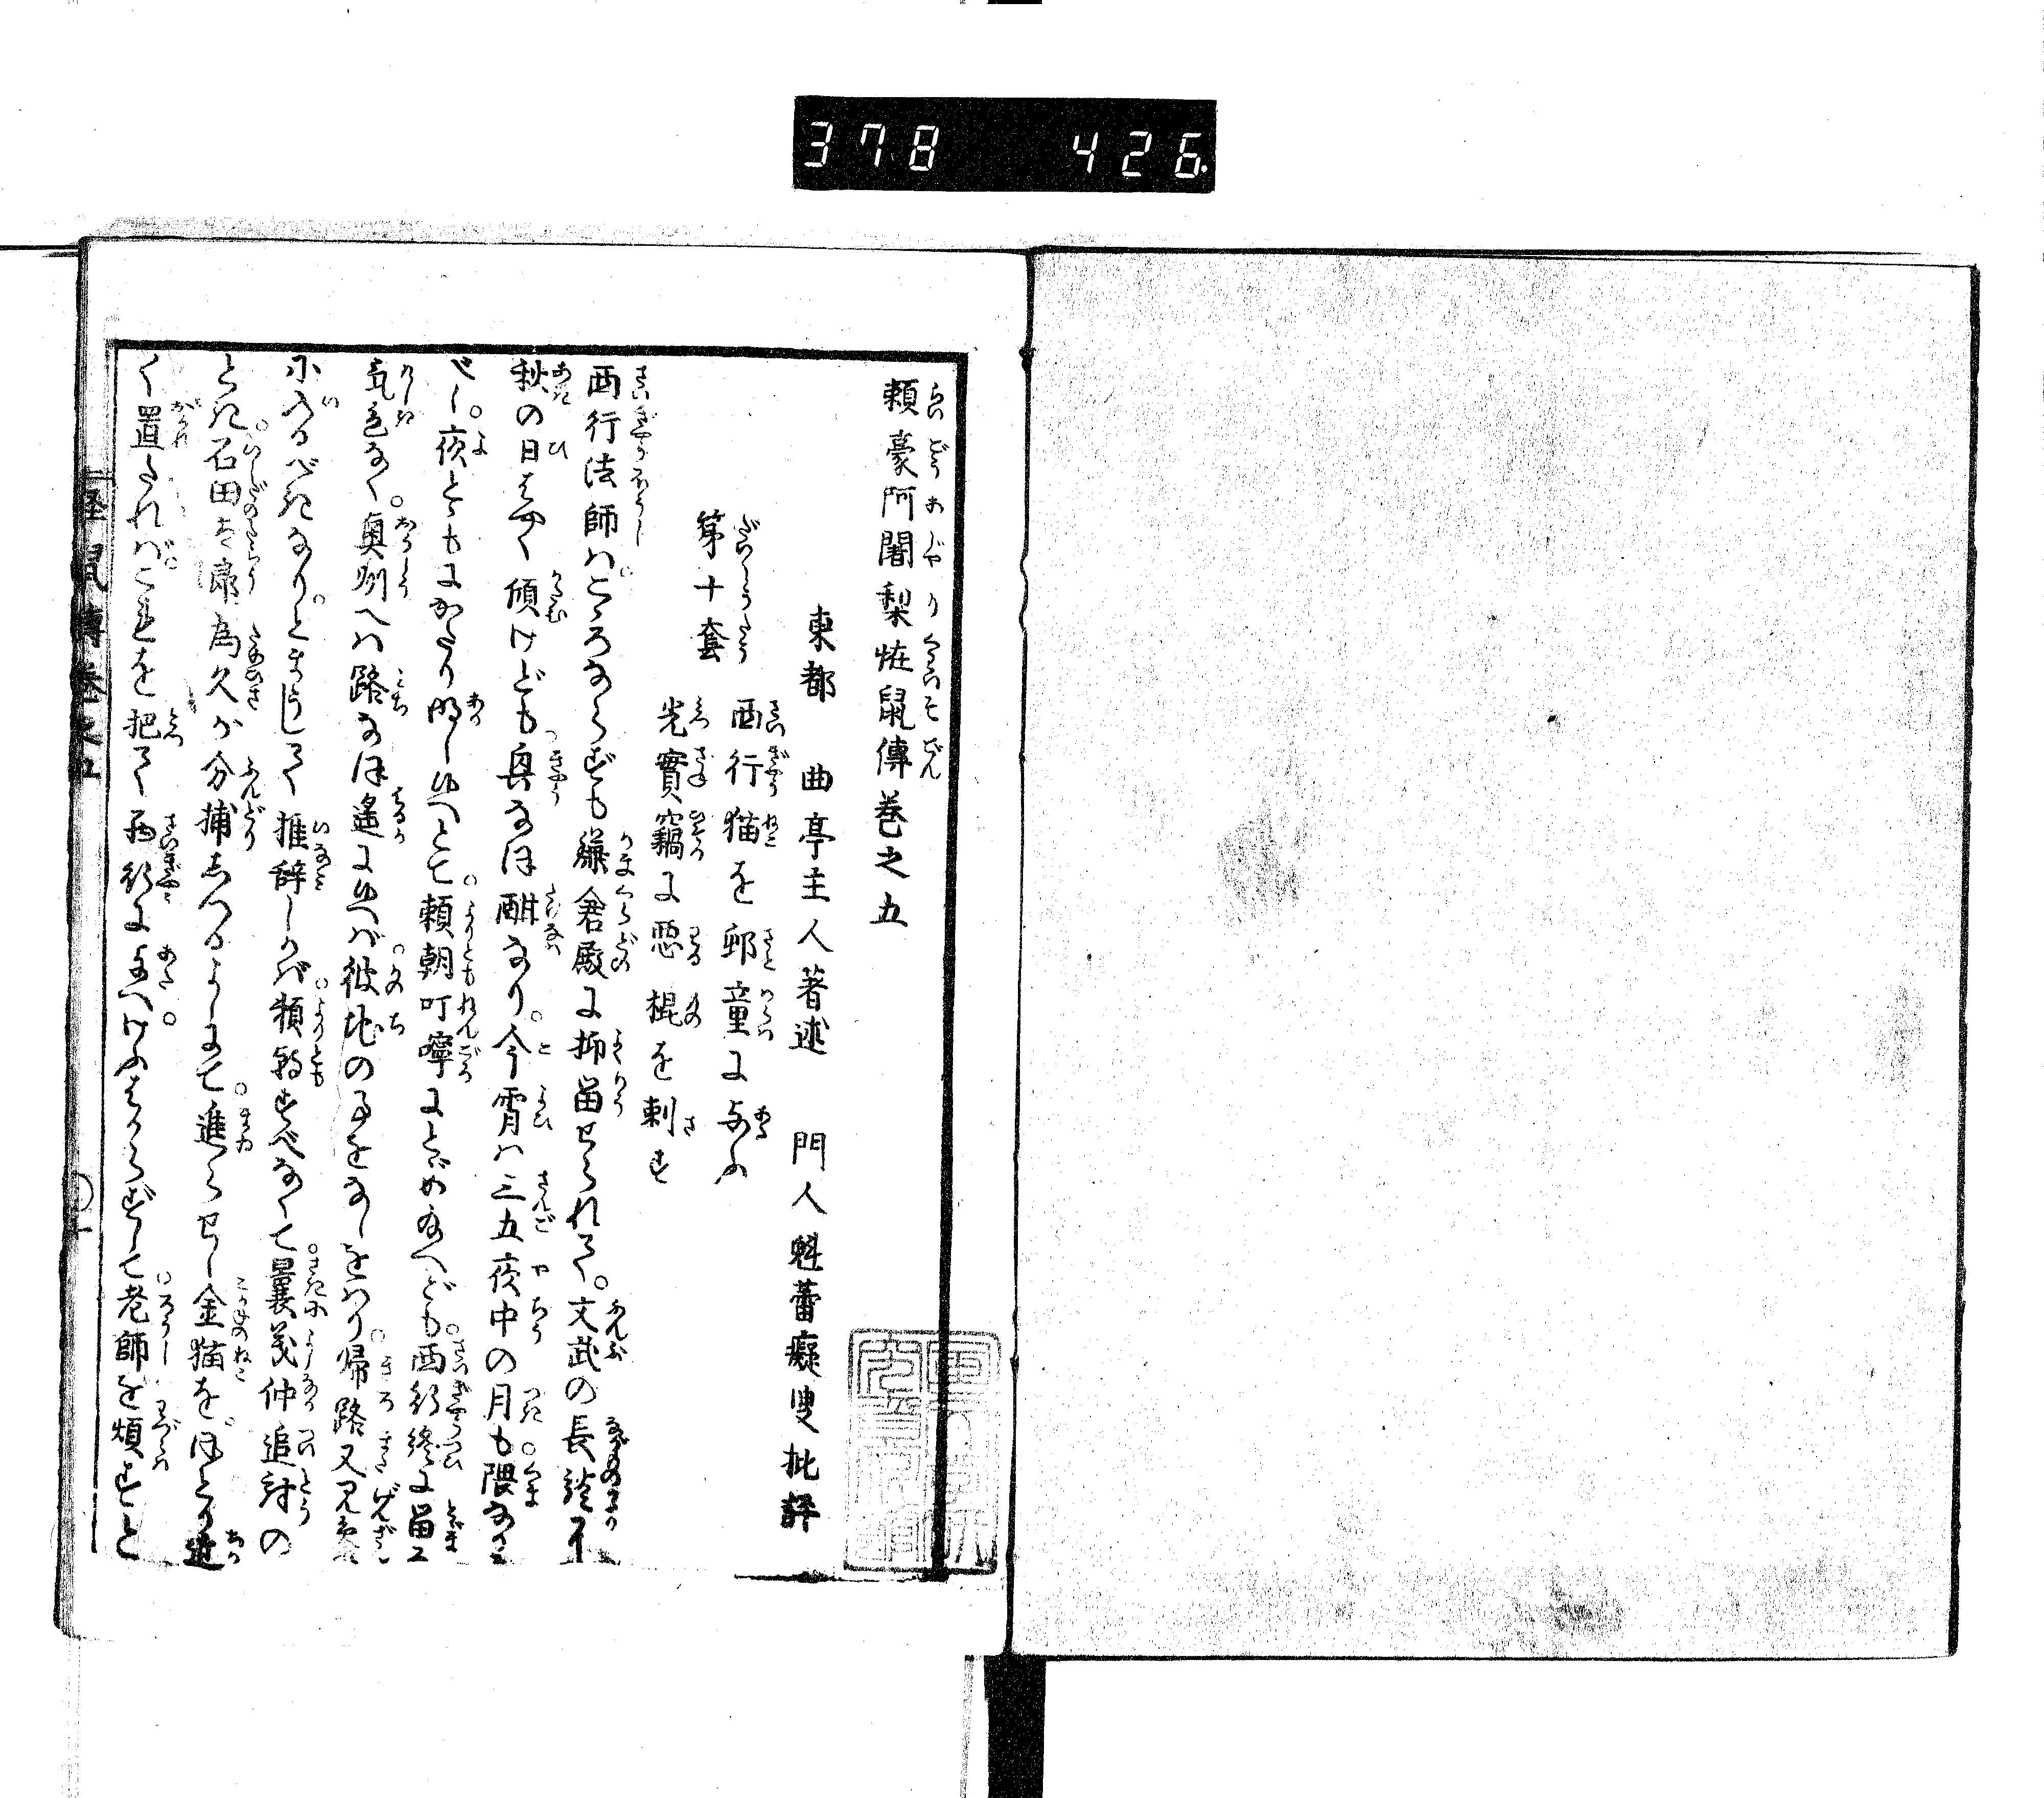 378 426
頼豪阿闍梨恠鼠傳巻之五
東都 曲亭主人著述 門人魁蕾癡叟批評
第十套 西行猫を邨童に与ふ
光實竊に悪棍を刺す
西行法師ハこゝろならずも鎌倉殿に抑畄せられて。文武の長談に
秋の日はやく傾けども興なほ酣なり。今宵ハ三五夜中の月も隈なかる
べし。夜とゝもにかたり明し給へとて。頼朝叮嚀にとゞめ給へども。西行終に畄る
気色なく。奥州へハ路なほ遙に侍れば。彼地の事をなしをはり。帰路又見參
に入るべきなりとまうして推辞しかば。頼朝すべなくて。曩に義仲追討の
とき。石田太郎為久が分捕しつるよしにて。進らせし金猫を。ほとり近
く置たれば。これを把て西行に与へ。はからずして老師を煩すと
怪鼠傳巻之五